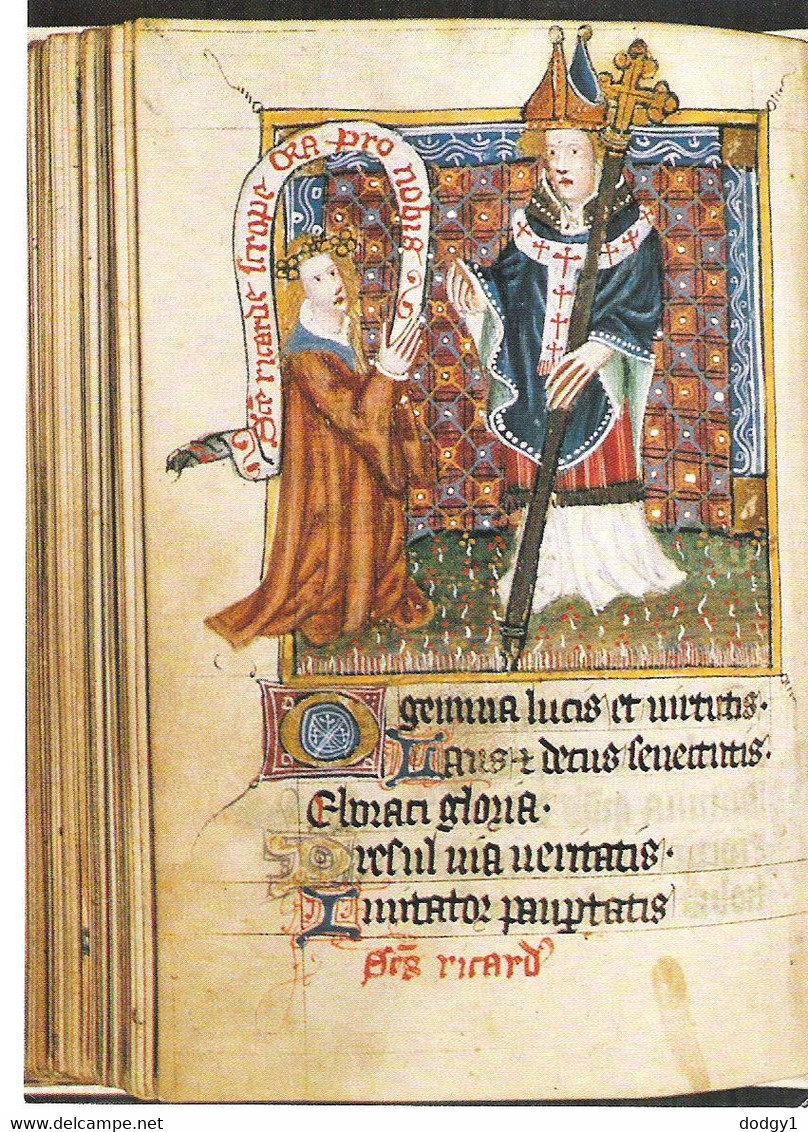 Sce ricarde scrope ORA pro nobis
O gemma lucis et uirtutis.
Laus & decus senectutis.
Eboraci gloria.
Presul uia ueritatis.
Imitator pauptatis
Scs ricard
dodgy1